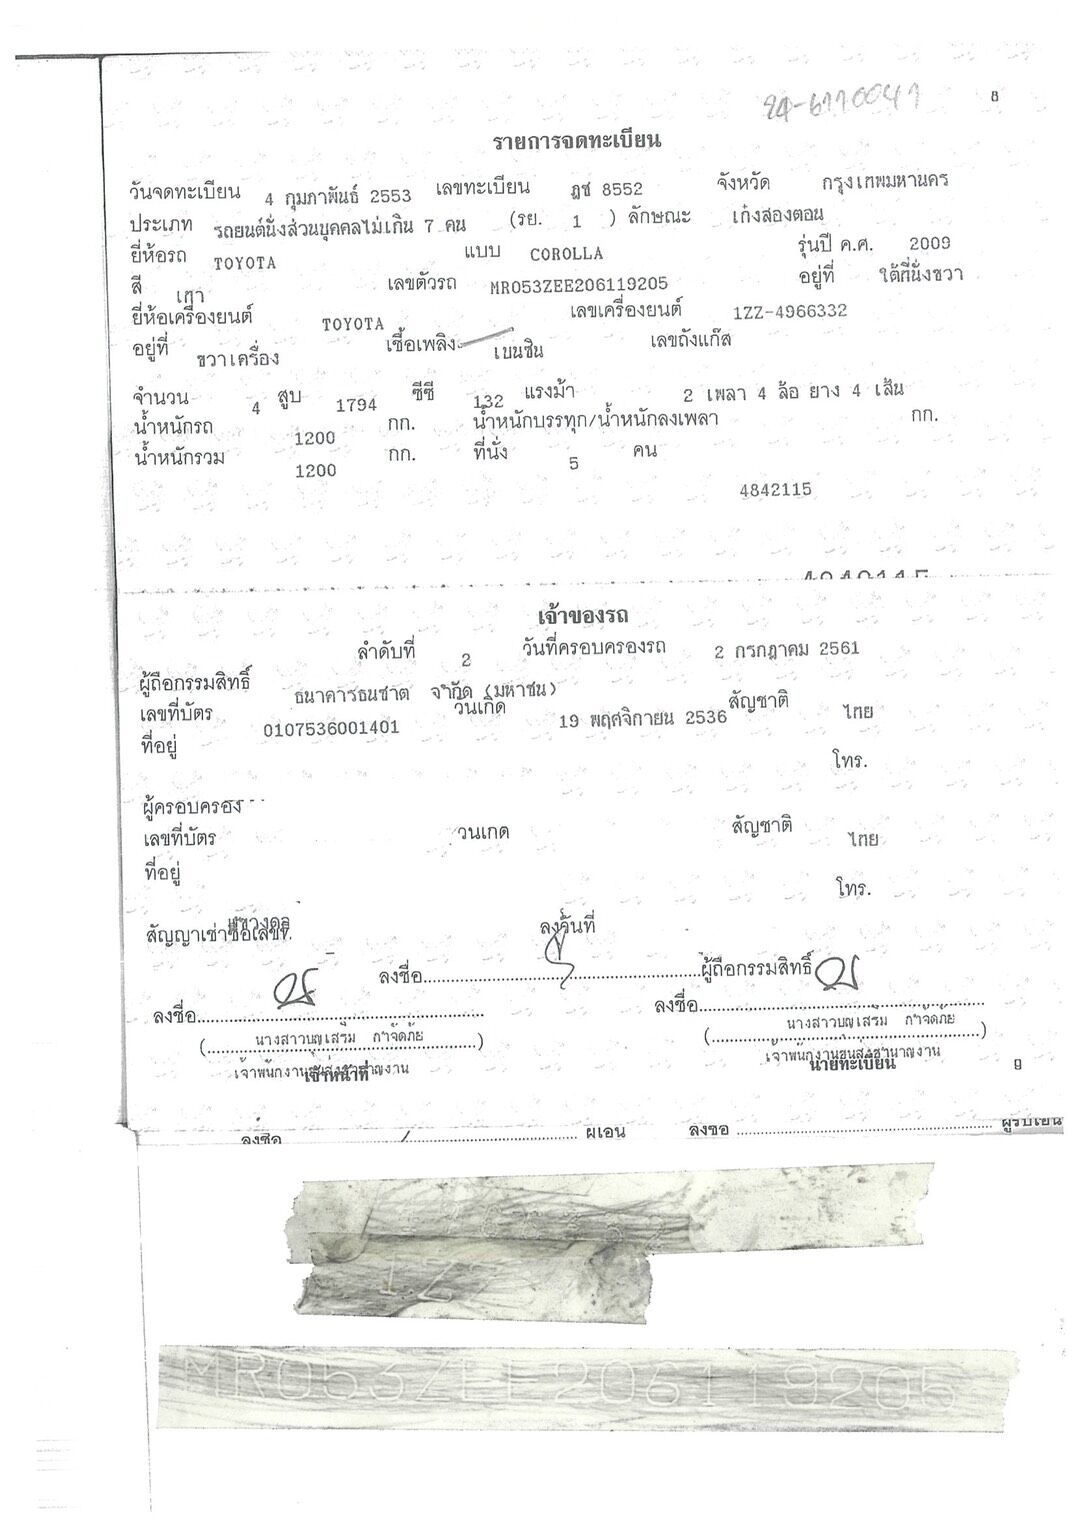 8
24-6110041
รายการจดทะเบียน
วันจดทะเบียน 4 กุมภาพันธ์ 2553 เลขทะเบียน ฎช 8552 จังหวัด กรุงเทพมหานคร
ประเภท รถยนต์นั่งส่วนบุคคลไม่เกิน 7 คน (รย. 1 ) ลักษณะ เก๋งสองตอน
ยี่ห้อรถ TOYOTA แบบ COROLLA รุ่นปี ค.ศ. 2009
สี เทา เลขตัวรถ MR053ZEE206119205 อยู่ที่ ใต้ที่นั่งขวา
ยี่ห้อเครื่องยนต์ TOYOTA เลขเครื่องยนต์ 1ZZ-4966332
อยู่ที่ ขวาเครื่อง เชื้อเพลิง เบนซิน เลขถังแก๊ส
จำนวน 4 สูบ 1794 ซีซี 132 แรงม้า 2 เพลา 4 ล้อ ยาง 4 เส้น
น้ำหนักรถ 1200 กก. น้ำหนักบรรทุก/น้ำหนักลงเพลา กก.
น้ำหนักรวม 1200 กก. ที่นั่ง 5 คน
4842115
เจ้าของรถ
ลำดับที่ 2 วันที่ครอบครองรถ 2 กรกฎาคม 2561
ผู้ถือกรรมสิทธิ์ ธนาคารธนชาต จำกัด (มหาชน)
เลขที่บัตร 0107536001401 วันเกิด 19 พฤศจิกายน 2536 สัญชาติ ไทย
ที่อยู่ โทร.
ผู้ครอบครอง
เลขที่บัตร วันเกิด สัญชาติ ไทย
ที่อยู่ โทร.
สัญญาเช่าซื้อเลขที่ ลงวันที่
ลงชื่อ ผู้ถือกรรมสิทธิ์
ลงชื่อ ลงชื่อ
(นางสาวบุญเสริม กำจัดภัย) (นางสาวบุญเสริม กำจัดภัย)
เจ้าพนักงานขนส่งชำนาญงาน เจ้าพนักงานขนส่งชำนาญงาน
เจ้าหน้าที่ นายทะเบียน 9
ลงชื่อ ลงชื่อ
1Z
MR053ZEE206119205